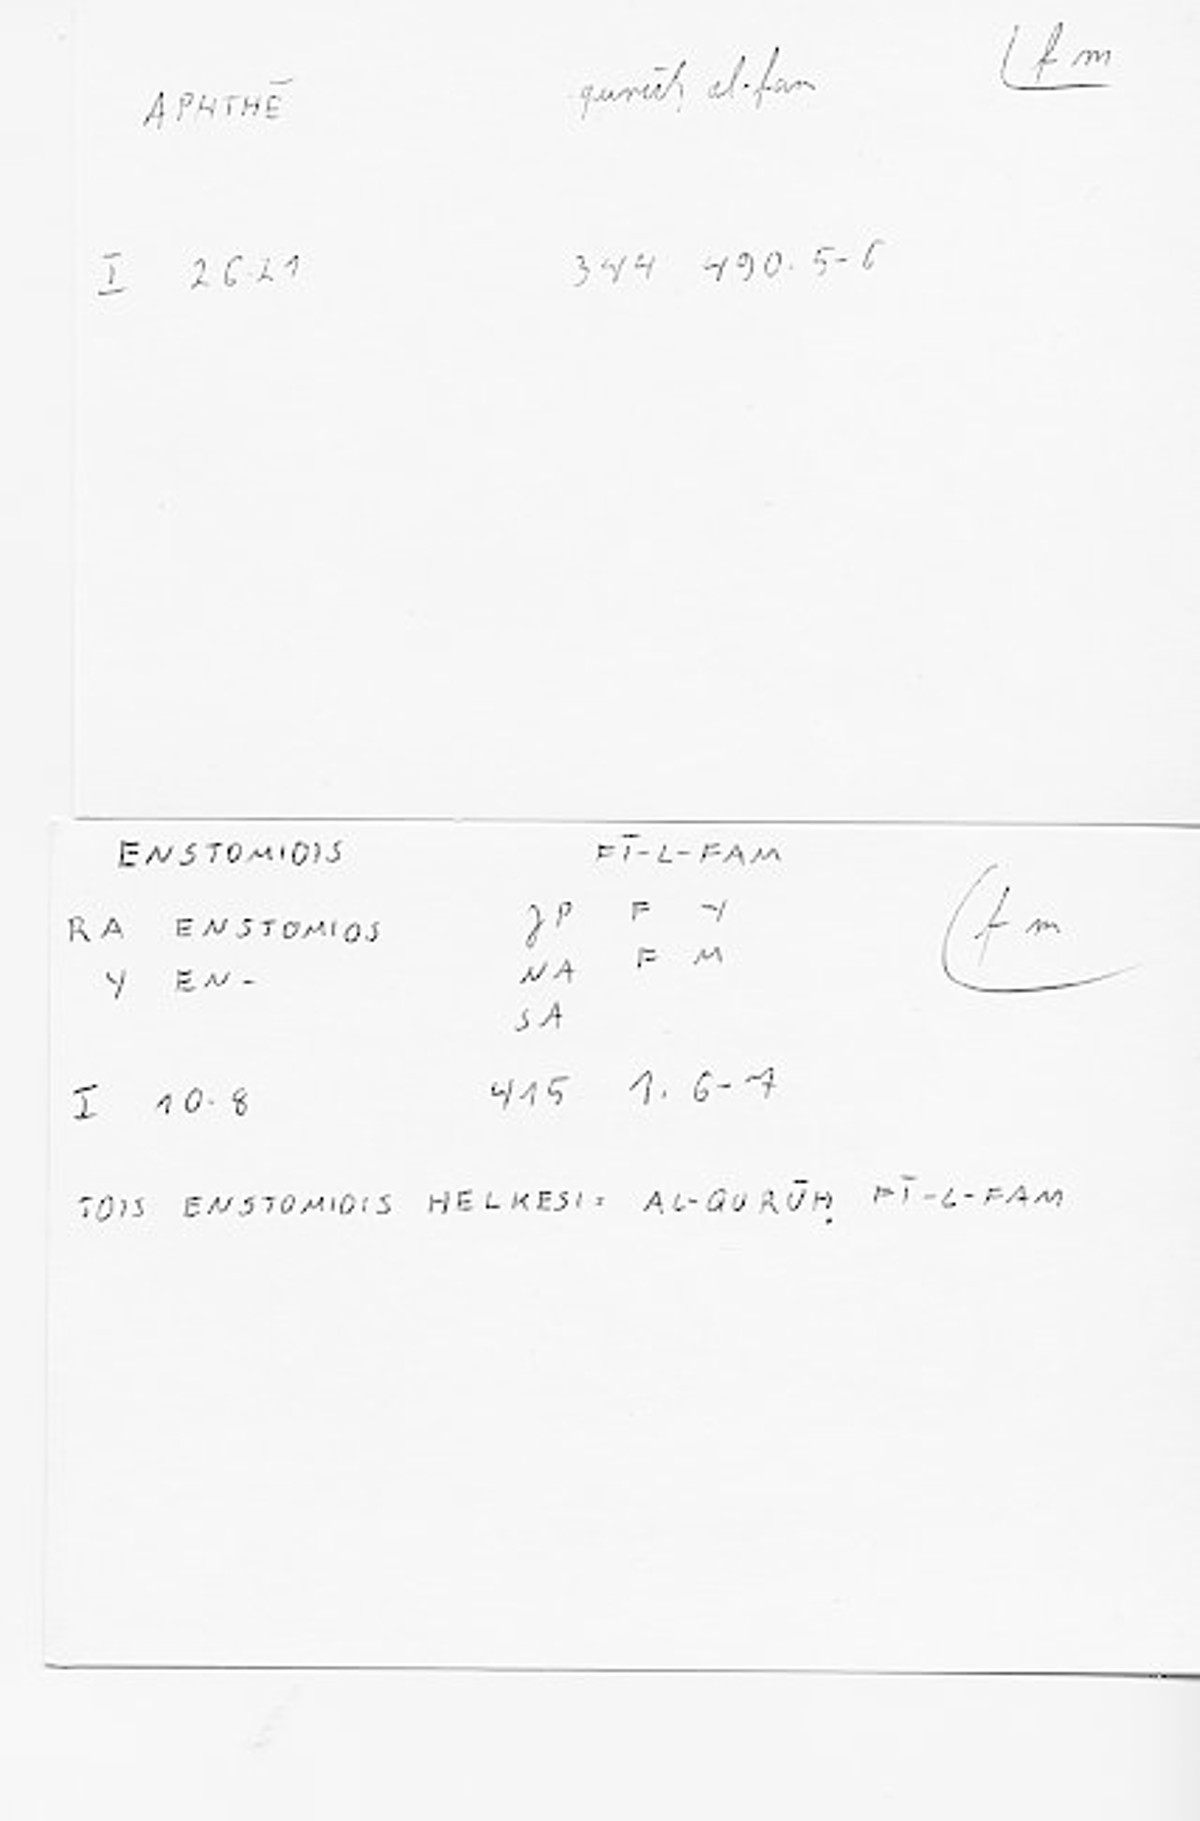 APHTHĒ qurūḥ al-fam fm
I 26.21 344 490.5-6
ENSTOMIOIS FĪ-L-FAM
RA ENSTOMIOS JP F Y fm
Y EN- NA F M
SA
I 10.8 415 1.6-7
TOIS ENSTOMIOIS HELKESI: AL-QURŪḤ FĪ-L-FAM